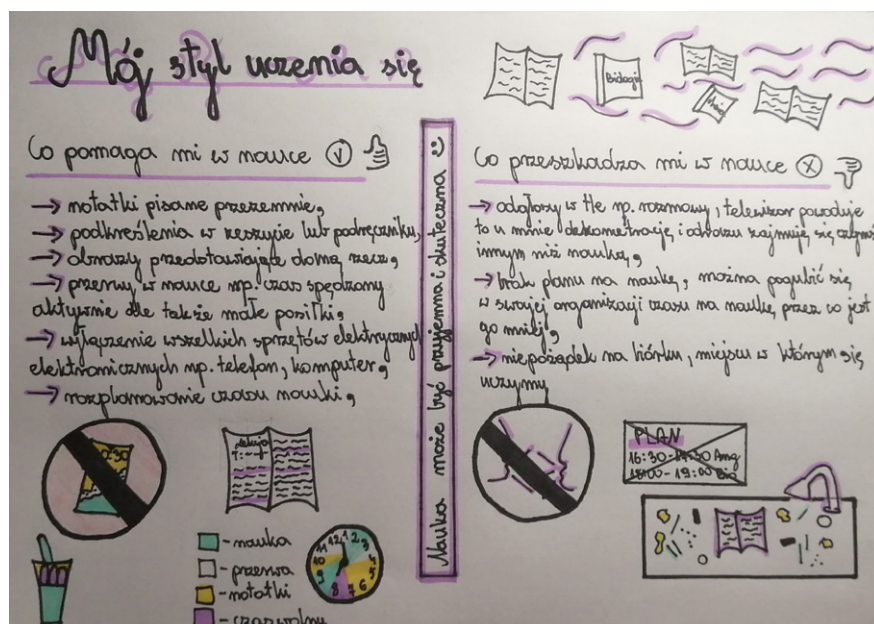 Mój styl uczenia się
Co pomaga mi w nauce v
→ notatki pisane przezemnie,
→ podkreślenia w zeszycie lub podręczniku,
→ obrazy przedstawiające daną rzecz,
→ przerwy w nauce np. czas spędzony
aktywnie ale także małe posiłki,
→ wyłączenie wszelkich sprzętów elektrycznych
elektronicznych np. telefon, komputer,
→ rozplanowanie czasu nauki,
- nauka
- przerwa
- notatki
- czas wolny
11 12 1 2 3 4 5 6 7 8 9 10
Nauka może być przyjemna i skuteczna
Biologia
Co przeszkadza mi w nauce x
→ odgłosy w tle np. rozmowy, telewizor powoduje
to u mnie dekoncentrację i odrazu zajmuję się czymś
innym niż nauką,
→ brak planu na naukę, można pogubić się
w swojej organizacji czasu na naukę przez co jest
go mniej,
→ nieporządek na biórku, miejscu w którym się
uczymy
PLAN
16:30-17:30 Ang
18:00-19:00 Bio